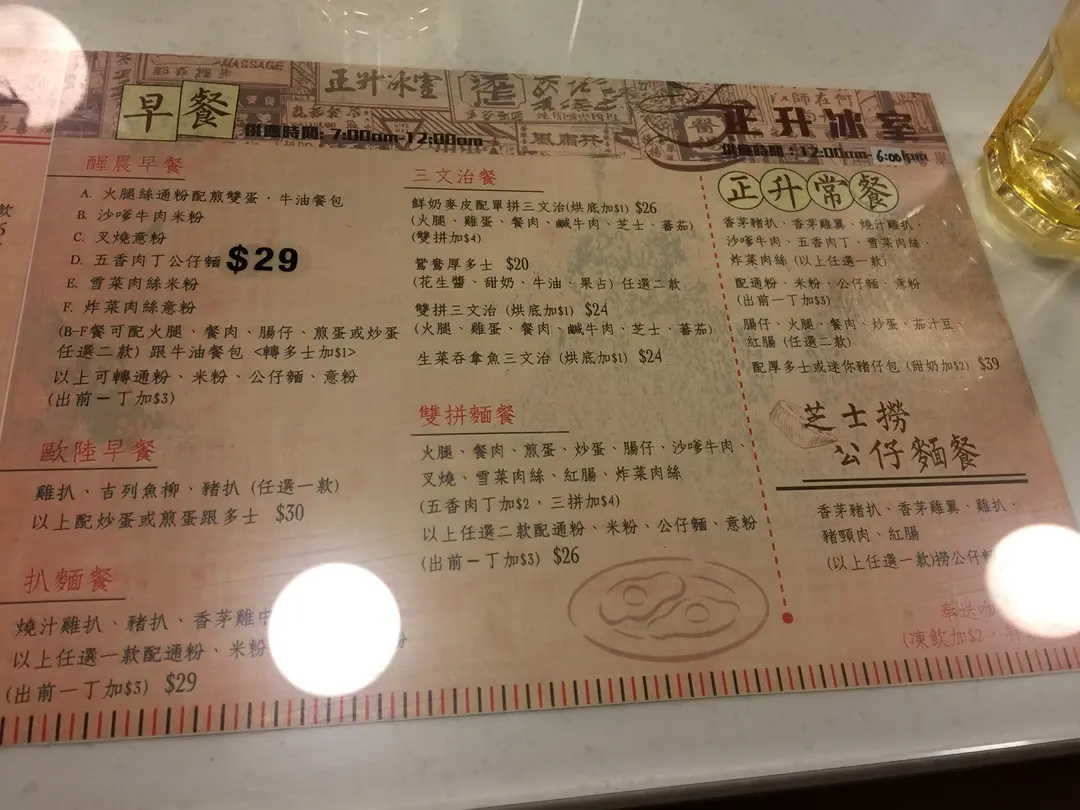 MASSAGE
正升冰室
早餐
供應時間: 7:00am-12:00am
醒晨早餐
A. 火腿絲通粉配煎雙蛋，牛油餐包
B. 沙嗲牛肉米粉
C. 叉燒意粉
D. 五香肉丁公仔麵
$29
E. 雪菜肉絲米粉
F. 炸菜肉絲意粉
(B-F餐可配火腿、餐肉、腸仔、煎蛋或炒蛋
任選二款) 跟牛油餐包 <轉多士加$1>
以上可轉通粉、米粉、公仔麵、意粉
(出前一丁加$3)
歐陸早餐
雞扒、吉列魚柳、豬扒 (任選一款)
以上配炒蛋或煎蛋跟多士 $30
扒麵餐
燒汁雞扒、豬扒、香茅雞中
以上任選一款配通粉、米粉
(出前一丁加$3) $29
三文治餐
鮮奶麥皮配單拼三文治(烘底加$1) $26
(火腿、雞蛋、餐肉、鹹牛肉、芝士、蕃茄)
(雙拼加$4)
鴛鴦厚多士 $20
(花生醬、甜奶、牛油、果占) 任選二款
雙拼三文治 (烘底加$1) $24
(火腿、雞蛋、餐肉、鹹牛肉、芝士、蕃茄)
生菜吞拿魚三文治 (烘底加$1) $24
雙拼麵餐
火腿、餐肉、煎蛋、炒蛋、腸仔、沙嗲牛肉、
叉燒、雪菜肉絲、紅腸、炸菜肉絲
(五香肉丁加$2，三拼加$4)
以上任選二款配通粉、米粉、公仔麵、意粉
(出前一丁加$3) $26
正升冰室
供應時間：12:00am-6:00pm
正升常餐
香茅豬扒、香茅雞翼、燒汁雞扒、
沙嗲牛肉、五香肉丁、雪菜肉絲、
炸菜肉絲 (以上任選一款)
配通粉、米粉、公仔麵、意粉
(出前一丁加$3)
腸仔、火腿、餐肉、炒蛋、茄汁豆、
紅腸 (任選二款)
配厚多士或迷你豬仔包 (甜奶加$2) $39
芝士撈
公仔麵餐
香茅豬扒、香茅雞翼、雞扒、
豬頸肉、紅腸
(以上任選一款)撈公仔
奉送咖
(凍飲加$2，